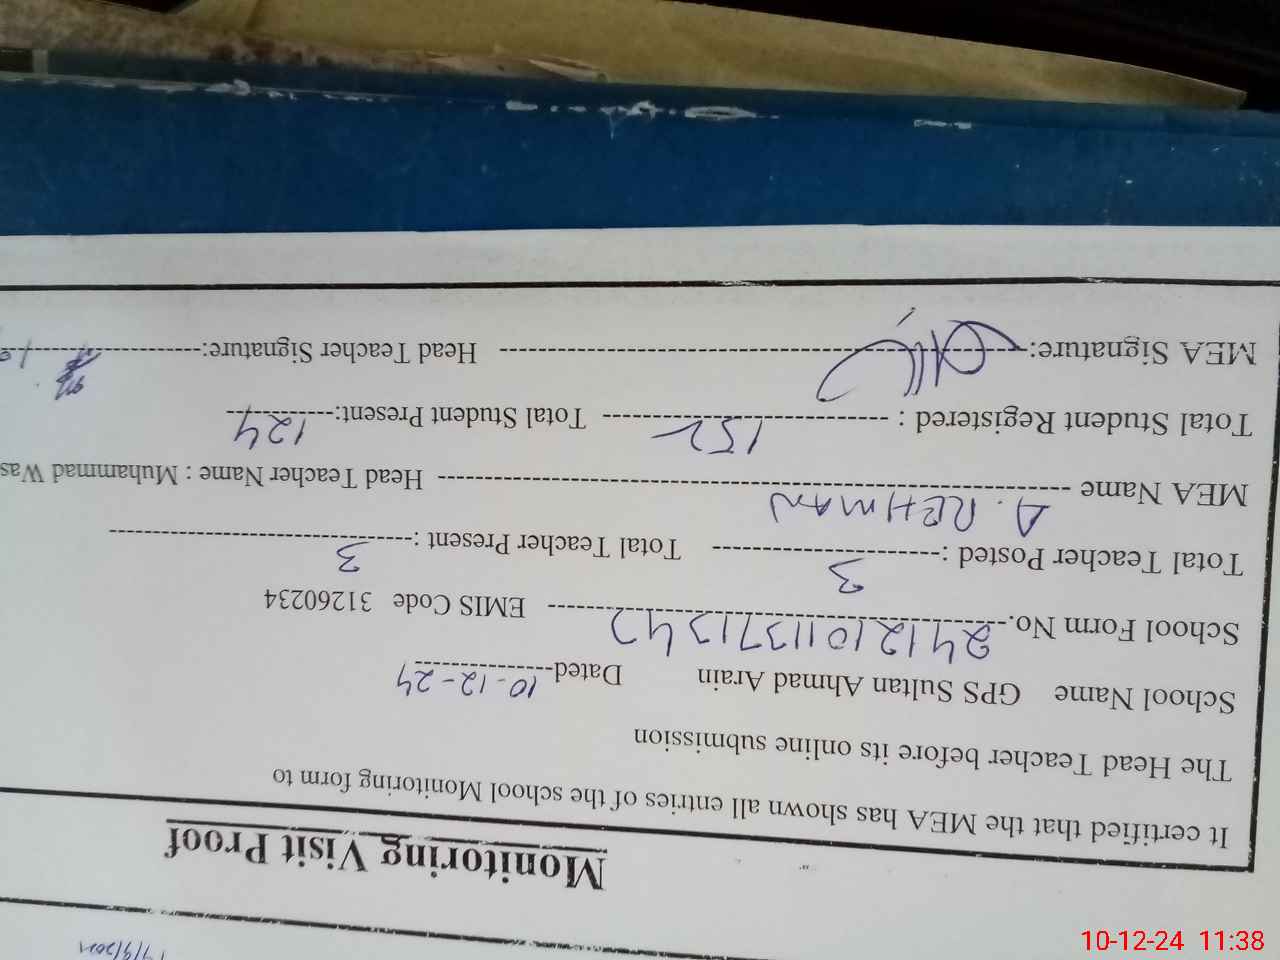 Monitoring Visit Proof
It certified that the MEA has shown all entries of the school Monitoring form to
The Head Teacher before its online submission
School Name GPS Sultan Ahmad Arain Dated 10-12-24
School Form No. 24121011371342 EMIS Code 31260234
Total Teacher Posted : 3 Total Teacher Present : 3
MEA Name A. REHMAN Head Teacher Name : Muhammad Was
Total Student Registered : 152 Total Student Present: 124
MEA Signature: Head Teacher Signature:
10-12-24 11:38